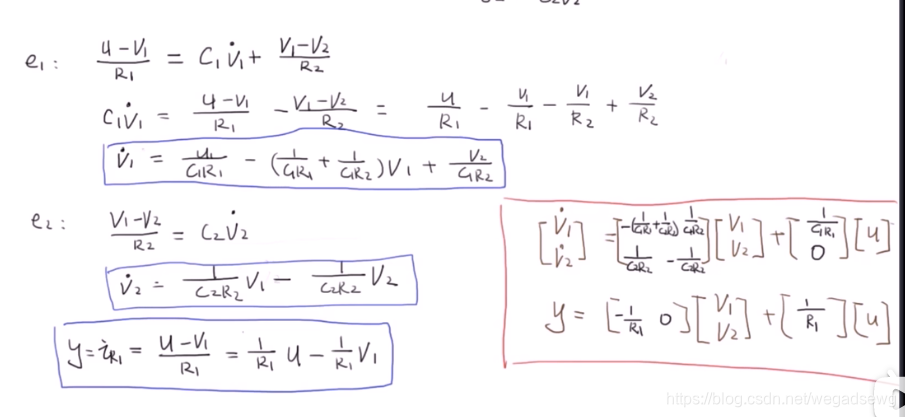 e₁: (u-V₁)/R₁ = C₁V̇₁ + (V₁-V₂)/R₂
C₁V̇₁ = (u-V₁)/R₁ - (V₁-V₂)/R₂ = u/R₁ - V₁/R₁ - V₁/R₂ + V₂/R₂
V̇₁ = u₁/(C₁R₁) - (1/(C₁R₁) + 1/(C₁R₂))V₁ + V₂/(C₁R₂)
e₂: (V₁-V₂)/R₂ = C₂V̇₂
V̇₂ = 1/(C₂R₂) V₁ - 1/(C₂R₂) V₂
y = i_R₁ = (u-V₁)/R₁ = 1/R₁ u - 1/R₁ V₁
[V̇₁; V̇₂] = [-(1/(C₁R₁)+1/(C₁R₂)) 1/(C₁R₂); 1/(C₂R₂) -1/(C₂R₂)] [V₁; V₂] + [1/(C₁R₁); 0] [u]
y = [-1/R₁ 0] [V₁; V₂] + [1/R₁] [u]